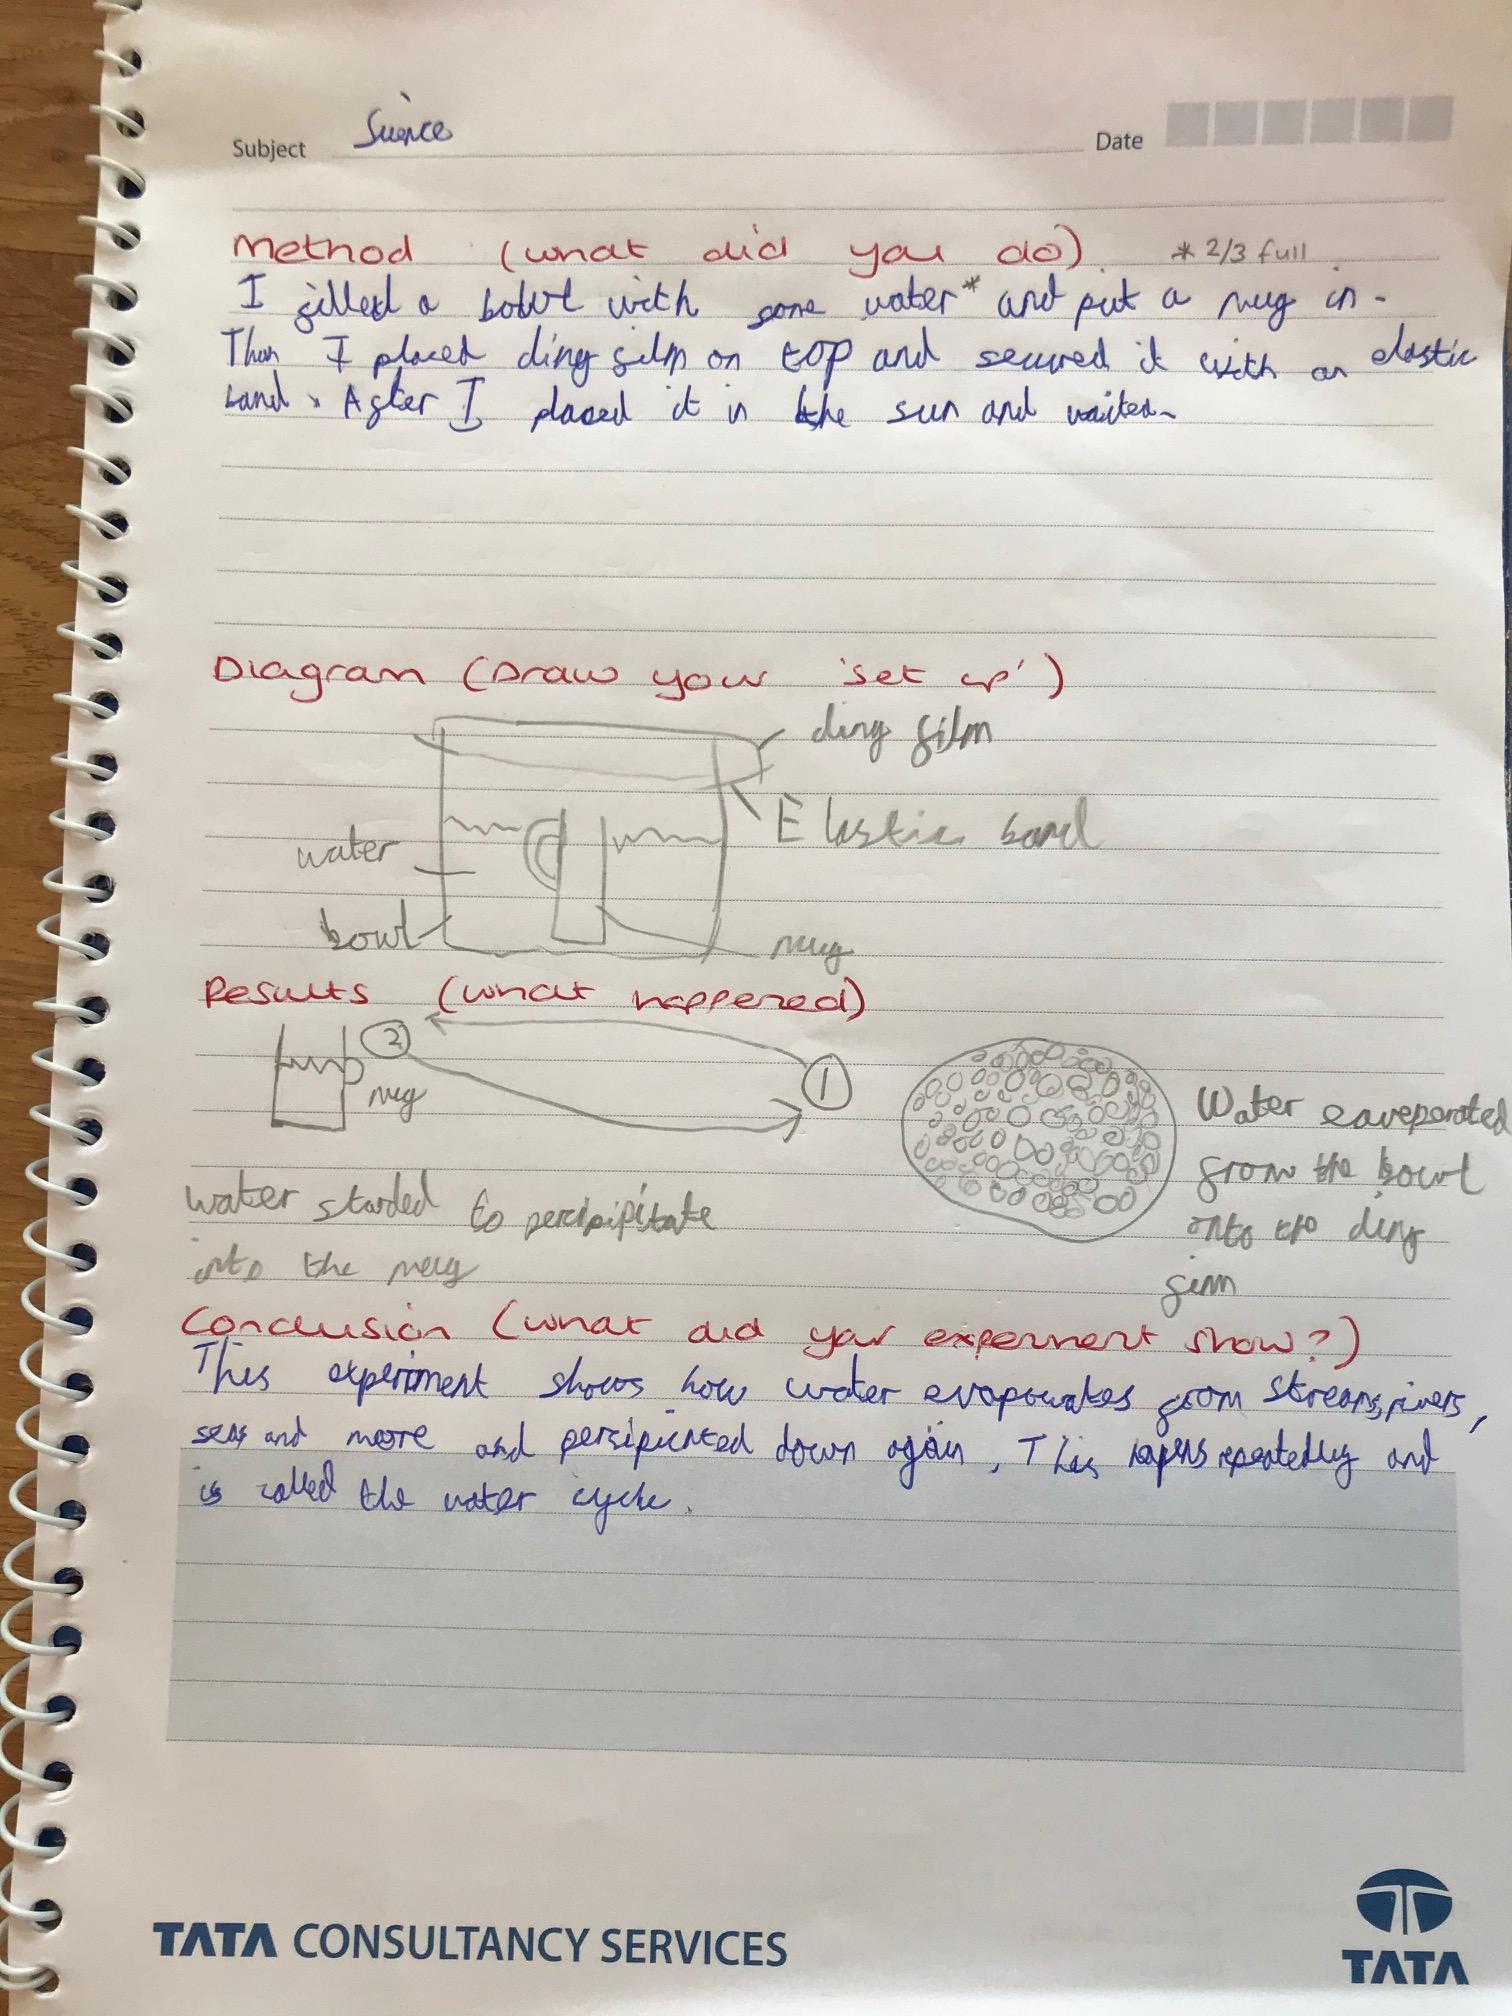 Subject Science Date
Method (what did you do) * 2/3 full
I filled a bowl with some water* and put a mug in.
Then I placed cling film on top and secured it with an elastic
band. After I placed it in the sun and waited.
Diagram (Draw your 'set up')
cling film
Elastic band
water
bowl
mug
Results (what happened)
2
1
mug
Water eaveporated
from the bowl
onto the cling
film
water started to percipipitate
into the mug
Conclusion (what did your experiment show?)
This experiment shows how water evaporates from streams, rivers,
seas and more and persipicated down again. This hapens repeatedly and
is called the water cycle.
TATA CONSULTANCY SERVICES
TATA